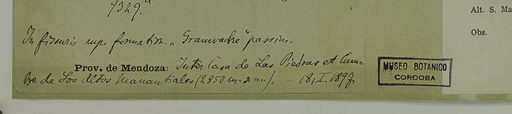 9329."
Alt. S. Ma
In fissuris rup. formation. "Grauwacke" passim.
Obs.
Prov. de Mendoza: Inter Casa de Las Piedras et Cum-
bre de Los Altos Manantiales (2850 m. s. m.). 18.I.1897
MUSEO BOTANICO
CORDOBA